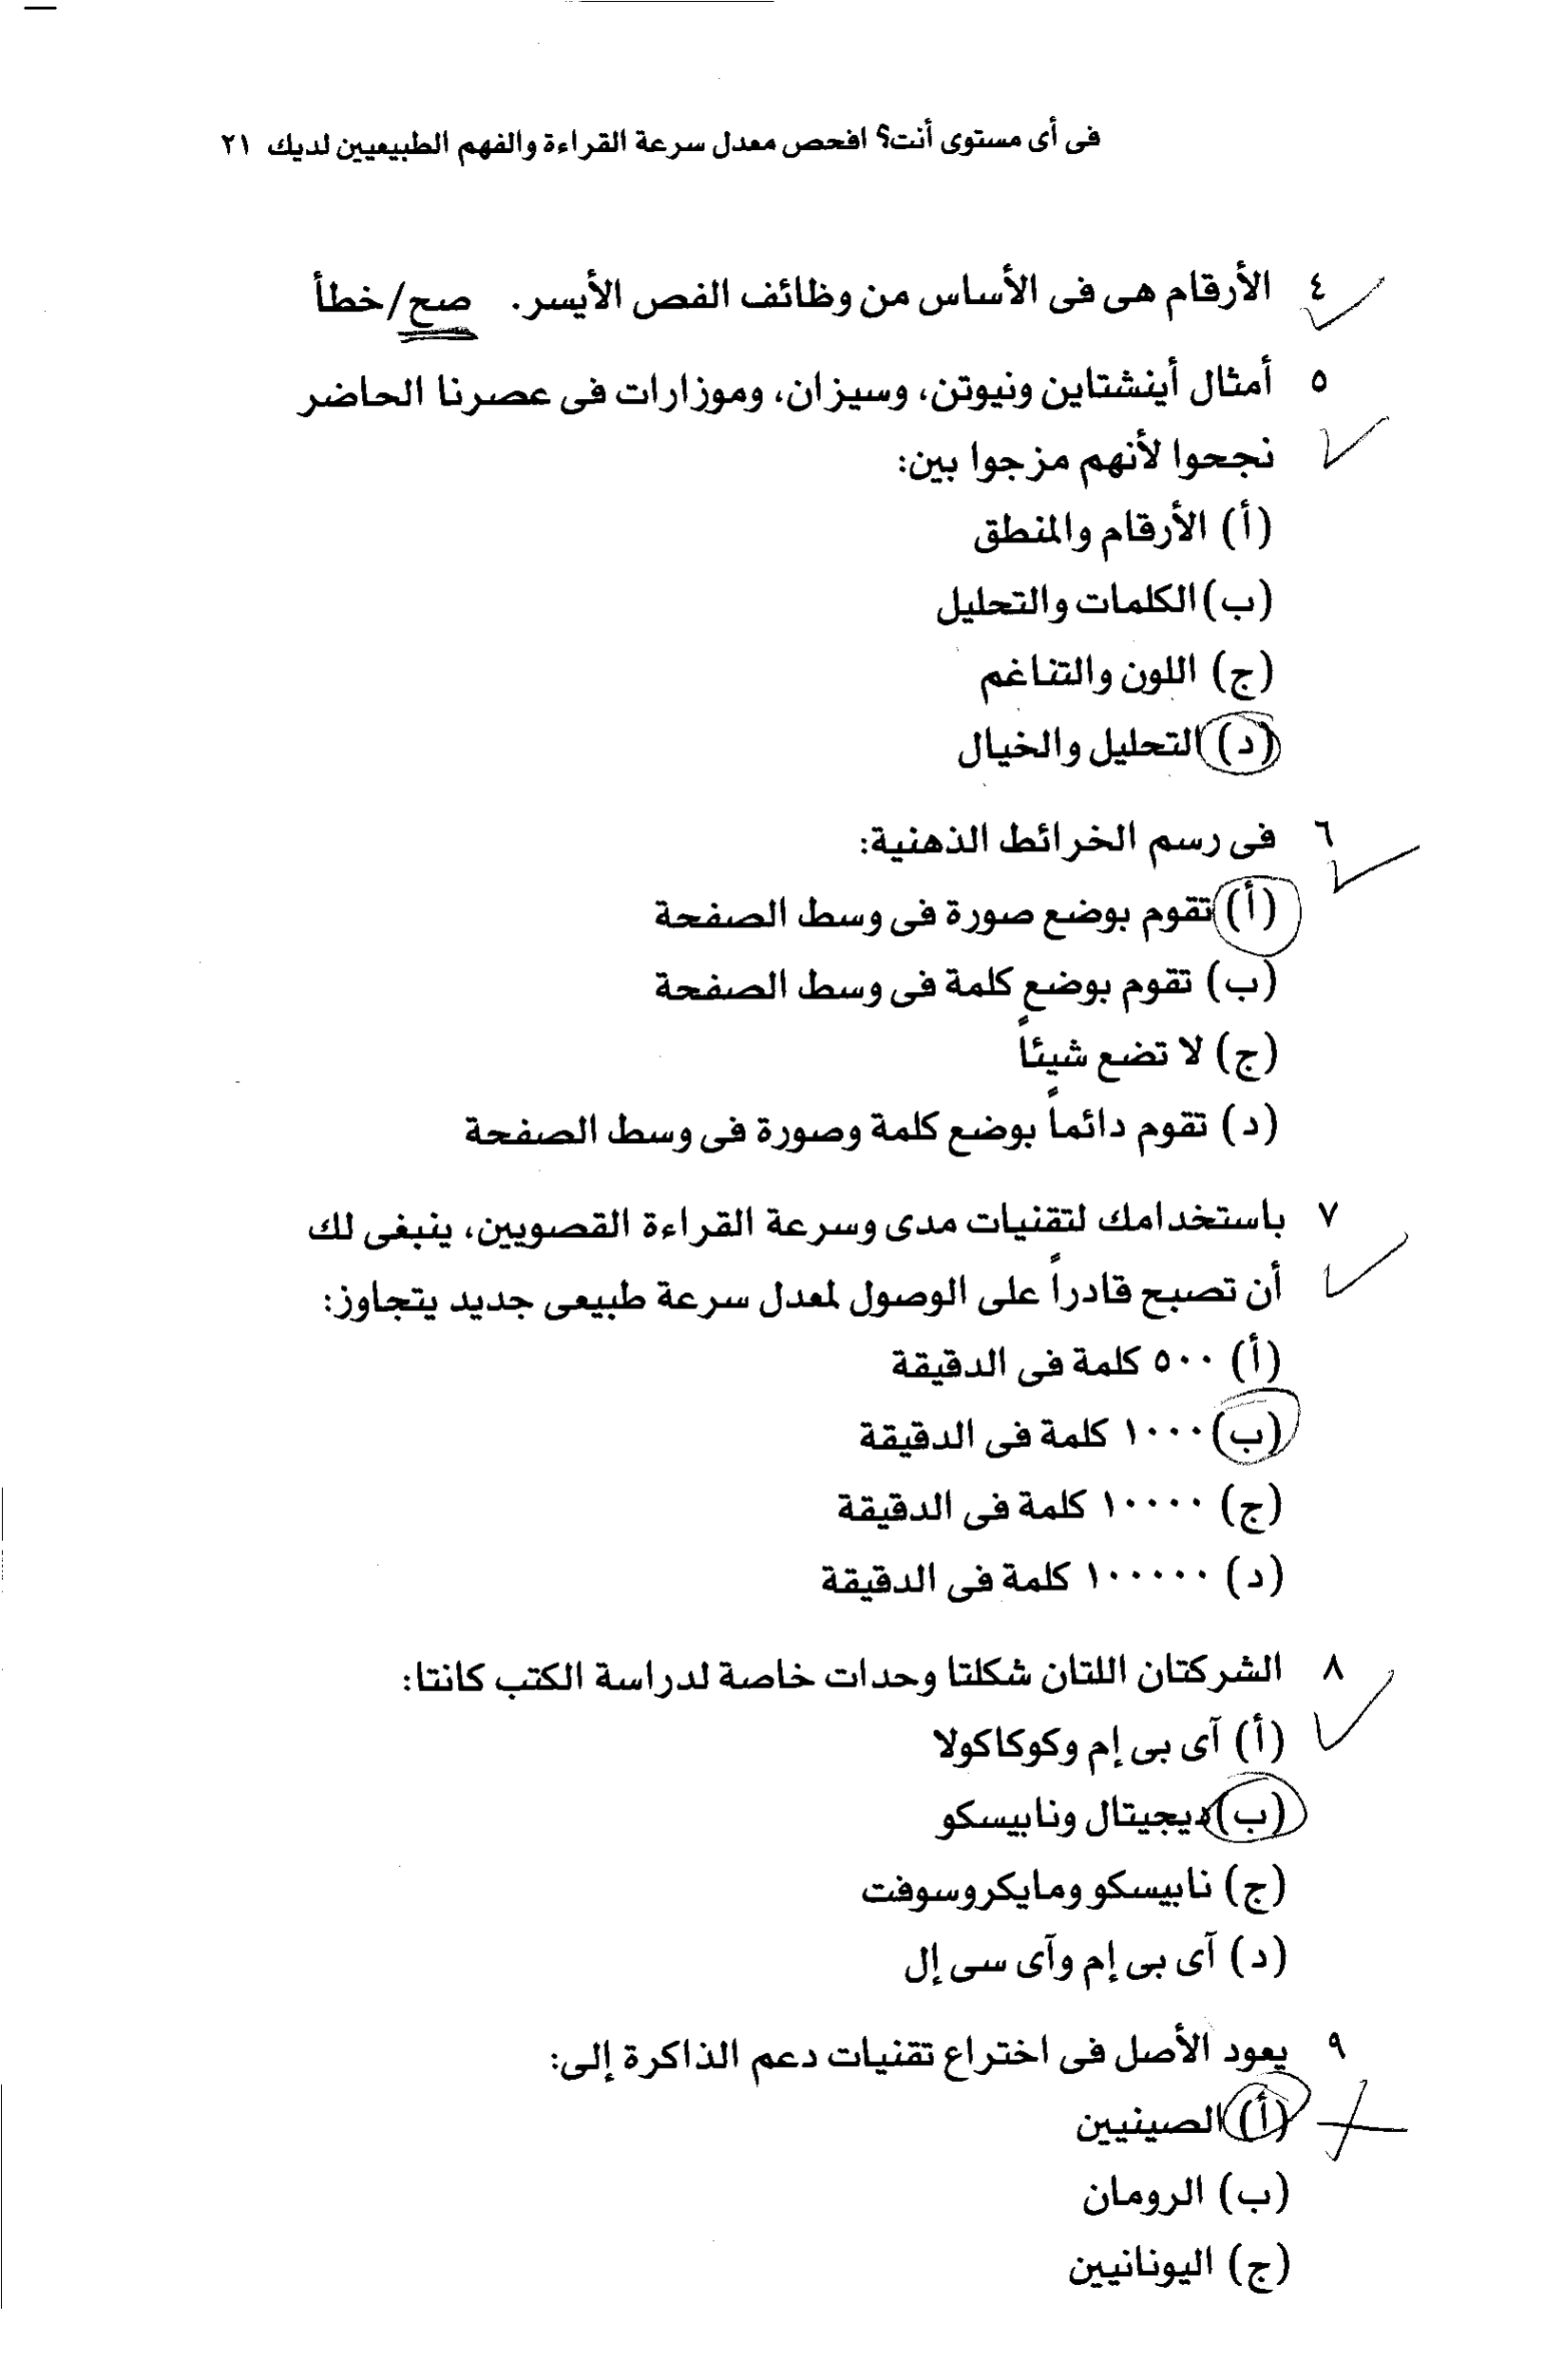 فى أى مستوى أنت؟ افحص معدل سرعة القراءة والفهم الطبيعيين لديك ٢١
٤ الأرقام هى فى الأساس من وظائف الفص الأيسر. صح/خطأ
٥ أمثال أينشتاين ونيوتن، وسيزان، وموزارات فى عصرنا الحاضر
نجحوا لأنهم مزجوا بين:
(أ) الأرقام والمنطق
(ب) الكلمات والتحليل
(ج) اللون والتناغم
(د) التحليل والخيال
٦ فى رسم الخرائط الذهنية:
(أ) تقوم بوضع صورة فى وسط الصفحة
(ب) تقوم بوضع كلمة فى وسط الصفحة
(ج) لا تضع شيئاً
(د) تقوم دائماً بوضع كلمة وصورة فى وسط الصفحة
٧ باستخدامك لتقنيات مدى وسرعة القراءة القصويين، ينبغى لك
أن تصبح قادراً على الوصول لمعدل سرعة طبيعى جديد يتجاوز:
(أ) ٥٠٠ كلمة فى الدقيقة
(ب) ١٠٠٠ كلمة فى الدقيقة
(ج) ١٠٠٠٠ كلمة فى الدقيقة
(د) ١٠٠٠٠٠ كلمة فى الدقيقة
٨ الشركتان اللتان شكلتا وحدات خاصة لدراسة الكتب كانتا:
(أ) آى بى إم وكوكاكولا
(ب) ديجيتال ونابيسكو
(ج) نابيسكو ومايكروسوفت
(د) آى بى إم وآى سى إل
٩ يعود الأصل فى اختراع تقنيات دعم الذاكرة إلى:
(أ) الصينيين
(ب) الرومان
(ج) اليونانيين